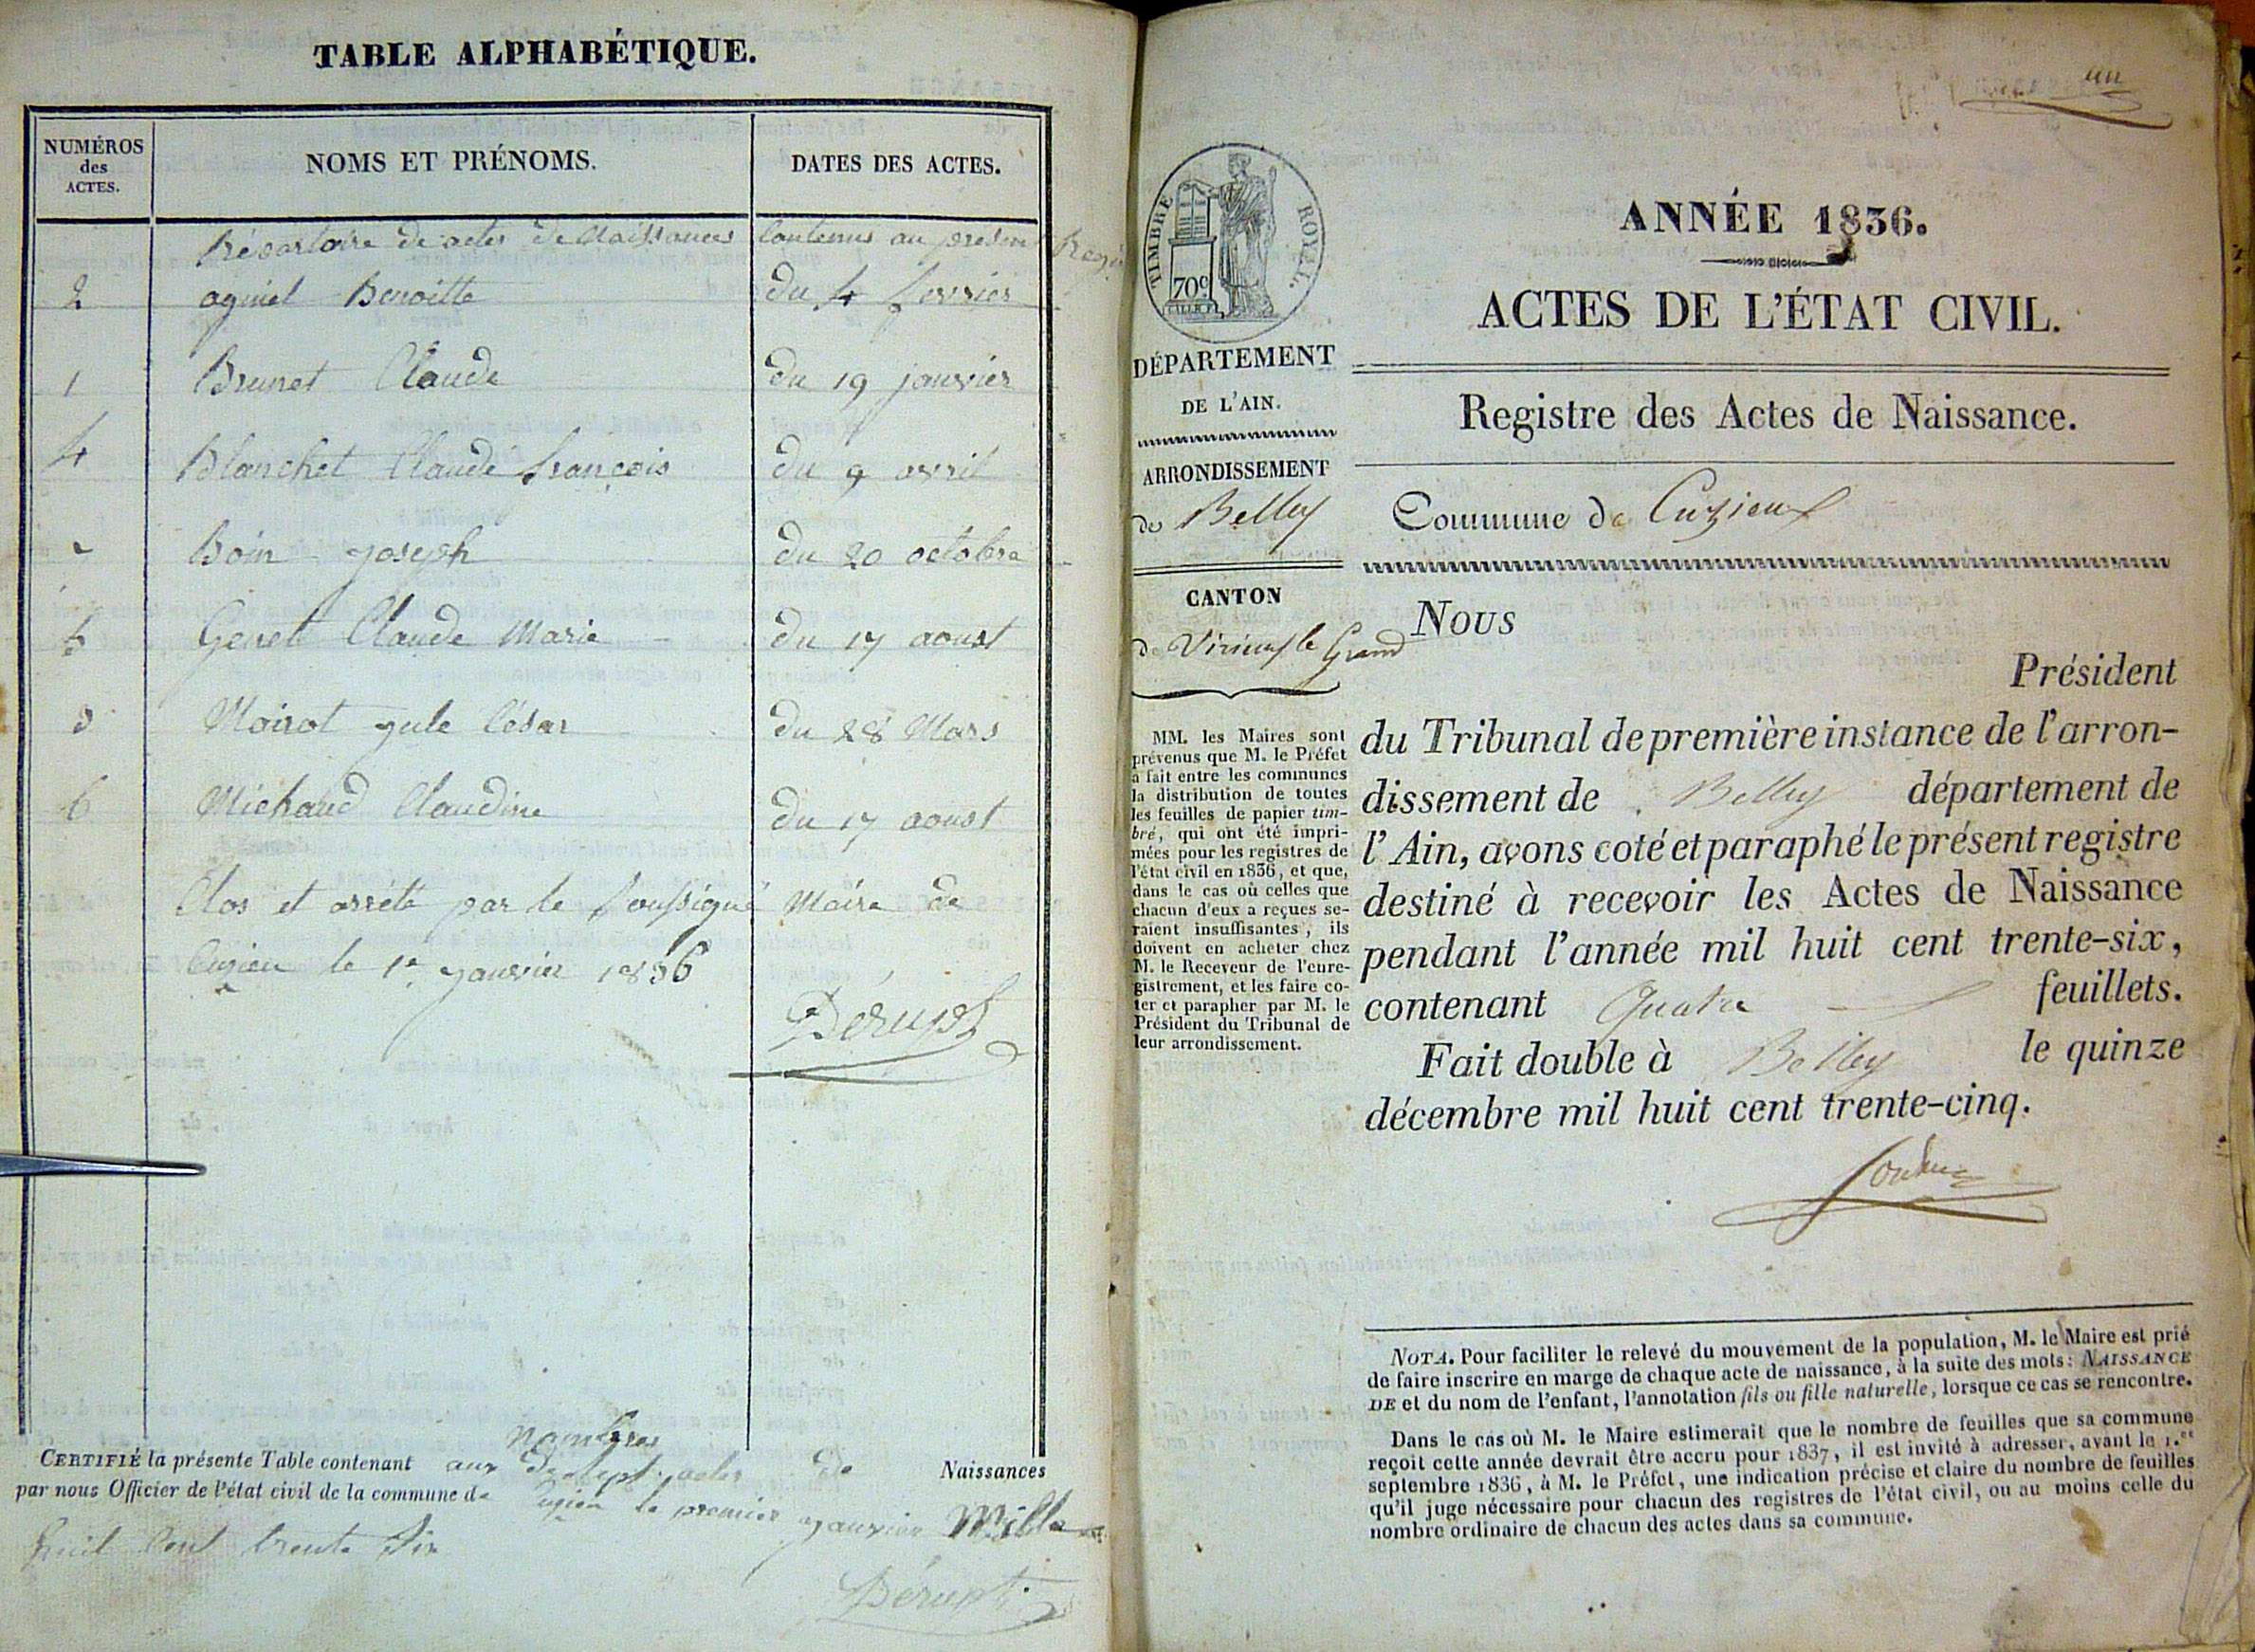 TABLE ALPHABÉTIQUE.
NUMÉROS des ACTES.
NOMS ET PRÉNOMS.
DATES DES ACTES.
Répertoire de actes de Naissances Contenus au présent
2 aguiel Benoitte du 4 fevrier
1 Brunet Claude du 19 janvier
4 Blanchet Claude françois du 9 avril
Boin joseph du 20 octobre
5 Genet Claude Marie du 17 aoust
3 Moirot jule César du 28 Mars
6 Michaud Claudine du 17 aoust
Clos et arrété par le soussigné Maire de
Cuzieu le 1er janvier 1836
CERTIFIÉ la présente Table contenant aux nombres de sept actes de Naissances
par nous Officier de l'état civil de la commune de Cuzieu le premier janvier Mille
huit Cent trente Six
un
TIMBRE ROYAL.
70c
DÉPARTEMENT
DE L'AIN.
ARRONDISSEMENT
de Belley
CANTON
de Virieu le Grand
MM. les Maires sont
prévenus que M. le Préfet
a fait entre les communes
la distribution de toutes
les feuilles de papier tim-
bré, qui ont été impri-
mées pour les registres de
l'état civil en 1836, et que,
dans le cas où celles que
chacun d'eux a reçues se-
raient insuffisantes, ils
doivent en acheter chez
M. le Receveur de l'enre-
gistrement, et les faire co-
ter et parapher par M. le
Président du Tribunal de
leur arrondissement.
ANNÉE 1836.
ACTES DE L'ÉTAT CIVIL.
Registre des Actes de Naissance.
Commune de Cuzieux
Nous
Président
du Tribunal de première instance de l'arron-
dissement de Belley département de
l'Ain, avons coté et paraphé le présent registre
destiné à recevoir les Actes de Naissance
pendant l'année mil huit cent trente-six,
contenant Quatre feuillets.
Fait double à Belley le quinze
décembre mil huit cent trente-cinq.
NOTA. Pour faciliter le relevé du mouvement de la population, M. le Maire est prié
de faire inscrire en marge de chaque acte de naissance, à la suite des mots: NAISSANCE
DE et du nom de l'enfant, l'annotation fils ou fille naturelle, lorsque ce cas se rencontre.
Dans le cas où M. le Maire estimerait que le nombre de feuilles que sa commune
reçoit cette année devrait être accru pour 1837, il est invité à adresser, avant le 1.er
septembre 1836, à M. le Préfet, une indication précise et claire du nombre de feuilles
qu'il juge nécessaire pour chacun des registres de l'état civil, ou au moins celle du
nombre ordinaire de chacun des actes dans sa commune.